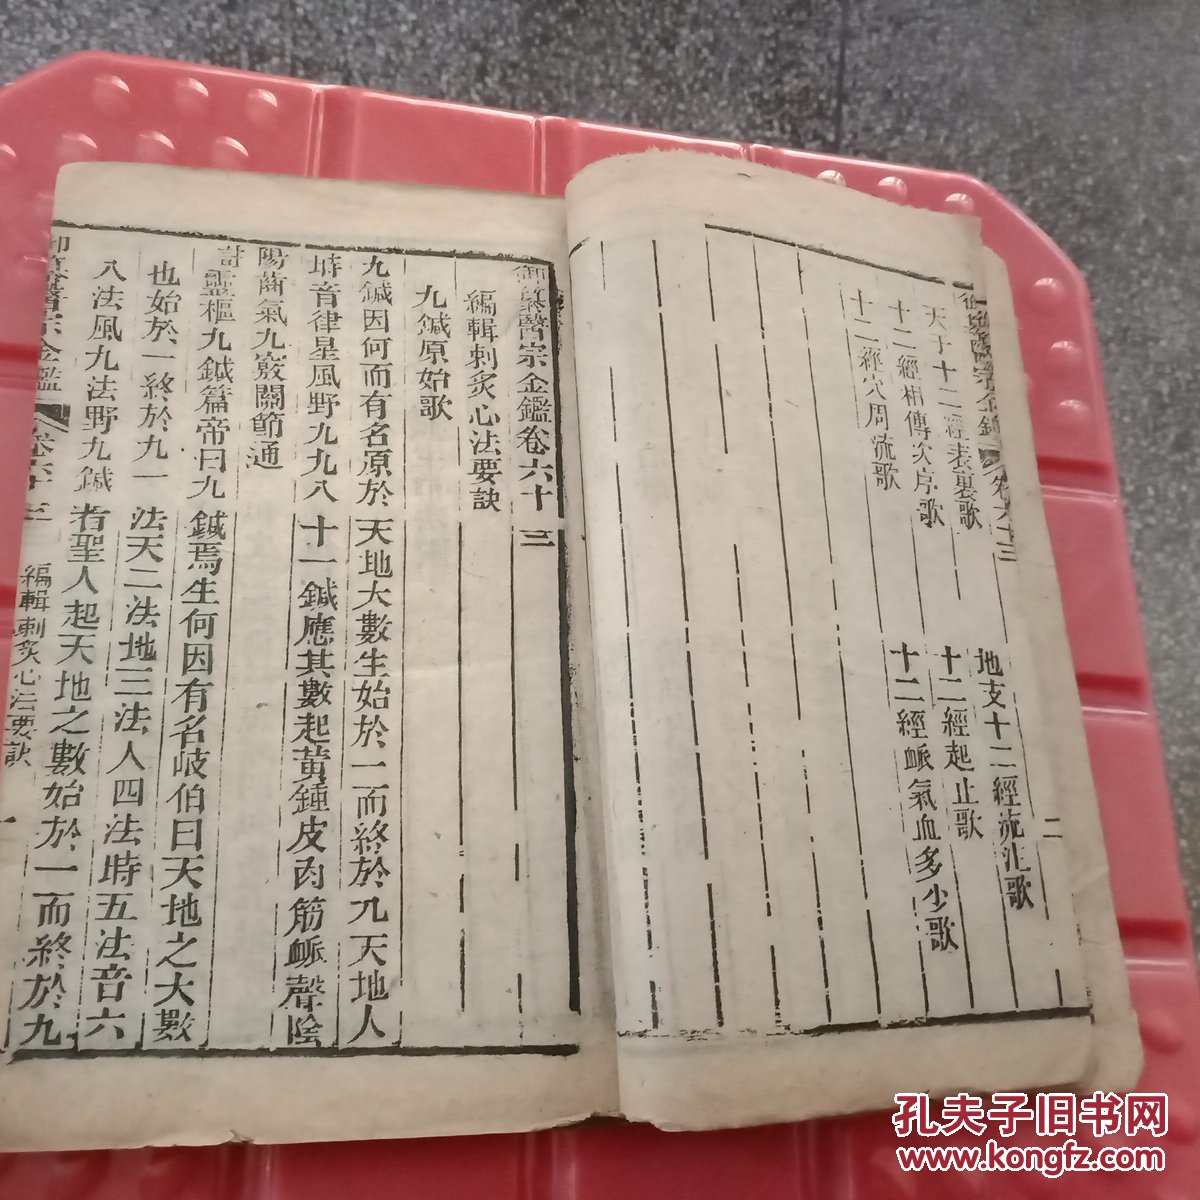 天干十二經表裏歌
地支十二經流注歌
十二經相傳次序歌
十二經起止歌
十二經穴周流歌
十二經脈氣血多少歌
二
御纂醫宗金鑑卷六十三
編輯刺灸心法要訣
九鍼原始歌
九鍼因何而有名原於天地大數生始於一而終於九天地人
時音律星風野九九八十一鍼應其數起黃鍾皮肉筋脈聲陰
陽齒氣九竅關節通
註靈樞九鍼篇帝曰九鍼焉生何因有名岐伯曰天地之大數
也始於一終於九一法天二法地三法人四法時五法音六
八法風九法野九鍼者聖人起天地之數始於一而終於九
御纂醫宗金鑑
卷六十三
編輯刺灸心法要訣
一
孔夫子旧书网
www.kongfz.com